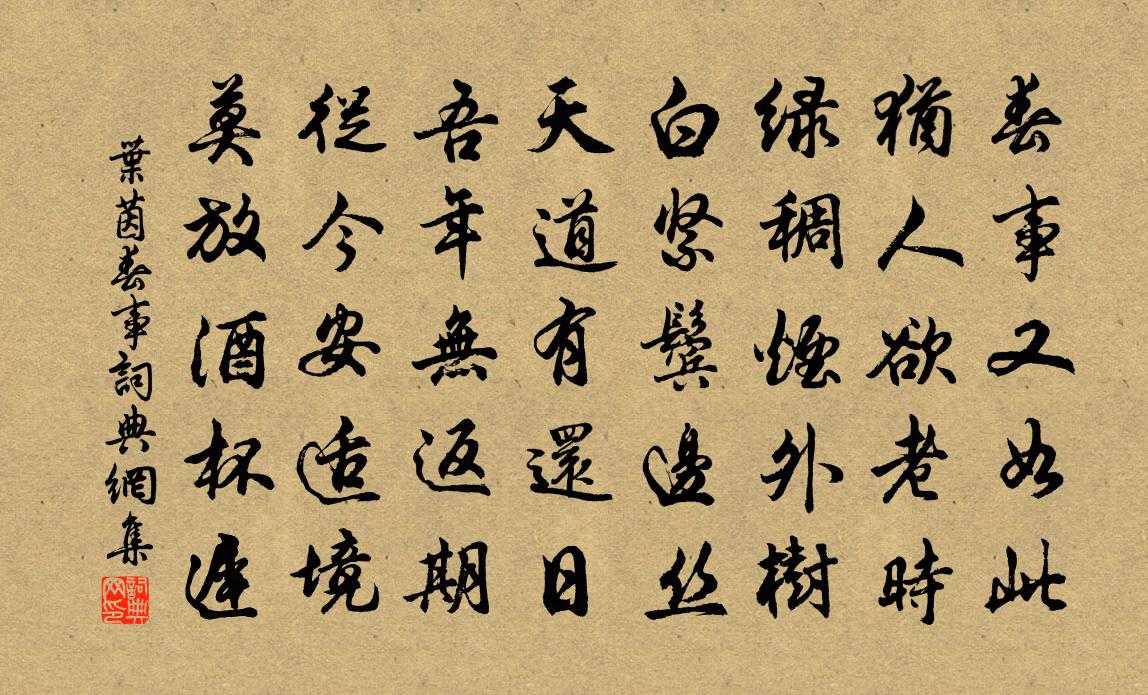 春事又如此
猶人欲老時
緑稠煙外樹
白緊鬢邊丝
天道有還日
吾年無返期
從今安适境
莫放酒杯遲
葉茵春事詞典網集
詞典网印